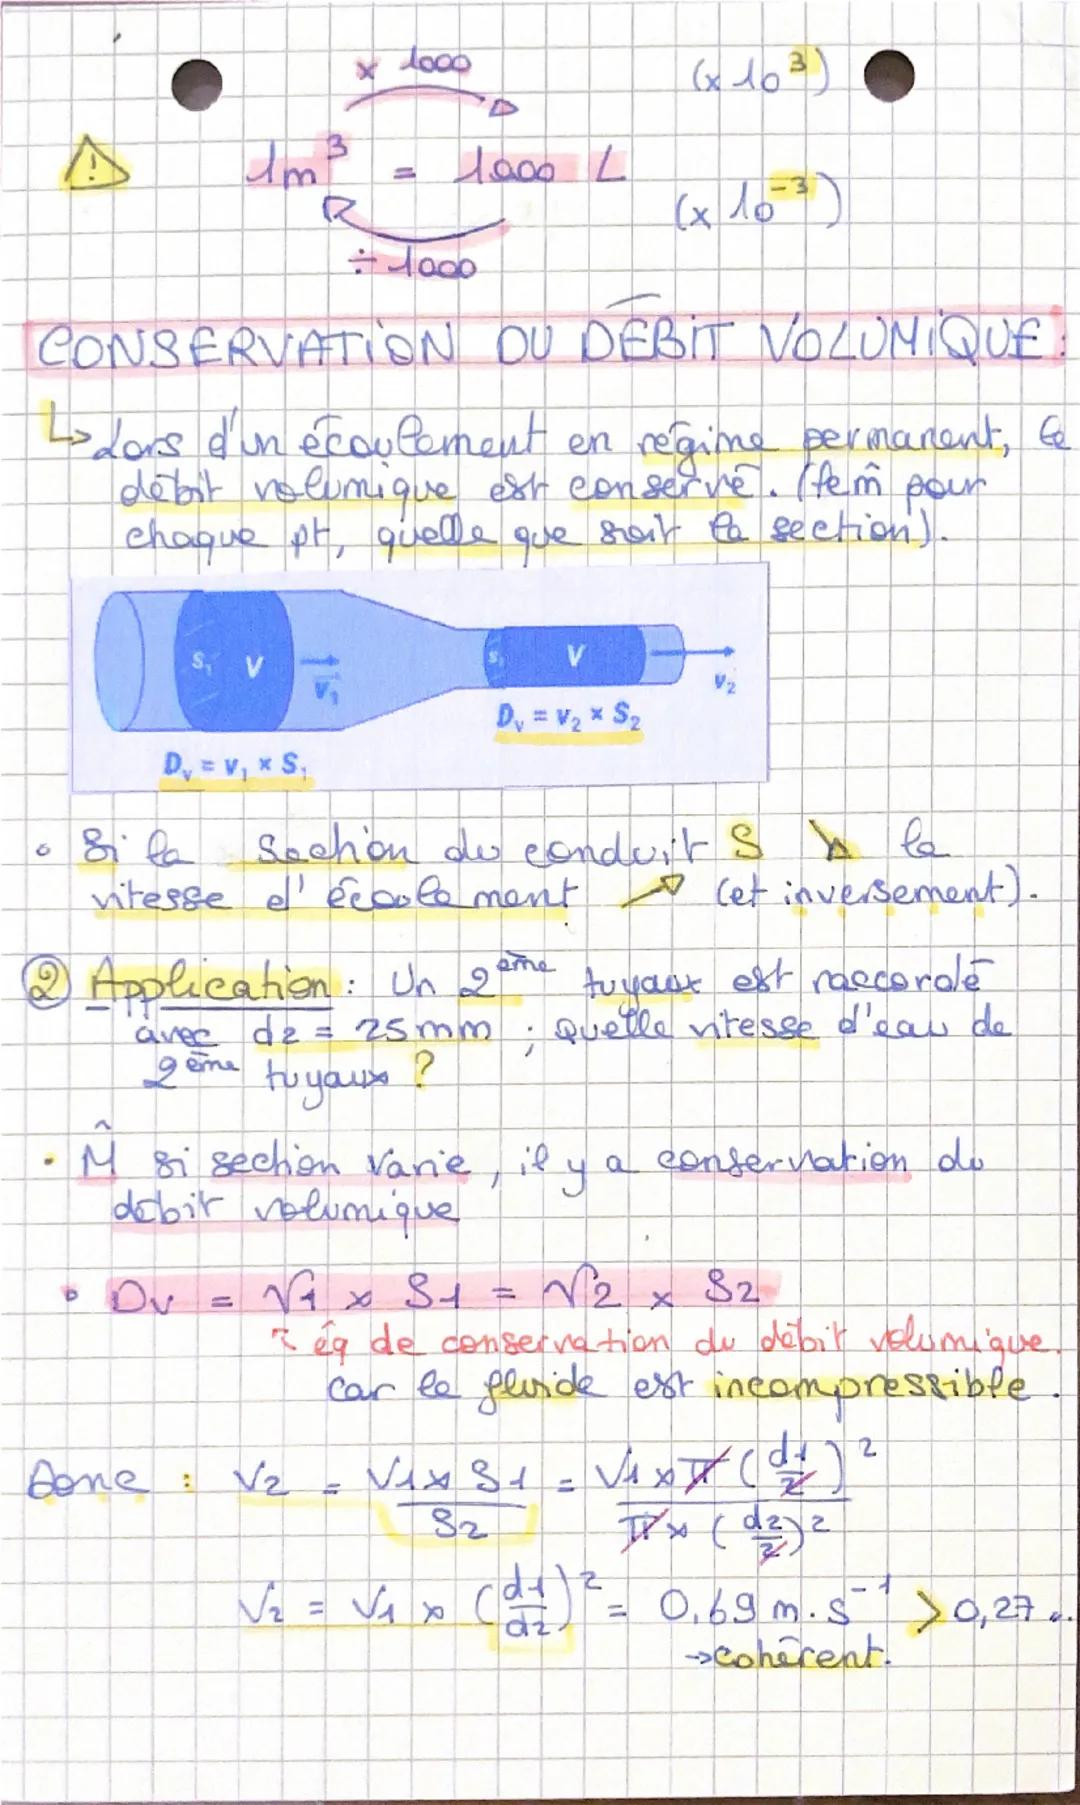 x 1000 (x 10³)
⚠ 1m³ = 1000 L
(x 10⁻³)
÷ 1000
CONSERVATION DU DÉBIT VOLUMIQUE:
↳ Lors d'un écoulement en régime permanent, le
débit volumique est conservé. (tem̂ pour
chaque pt, quelle que soit la section).
S₁ V v₁
S₂ V v₂
Dᵥ = v₂ × S₂
Dᵥ = v₁ × S₁
• Si la section du conduit S ↘ la
vitesse d'écoulement ↗ (et inversement).
② Application : Un 2ème tuyaux est raccordé
avec d2 = 25 mm ; quelle vitesse d'eau de
2ème tuyaux ?
• M̂ si section varie, il y a conservation du
débit volumique
• Dv = V1 x S1 = V2 x S2
↖ éq de conservation du débit volumique.
car le fluide est incompressible.
Donc : V2 = V1 x S1 / S2 = V1 x π (d1/2)² / π x (d2/2)²
V2 = V1 x (d1/d2)² = 0,69 m.s⁻¹ > 0,27...
→ cohérent.